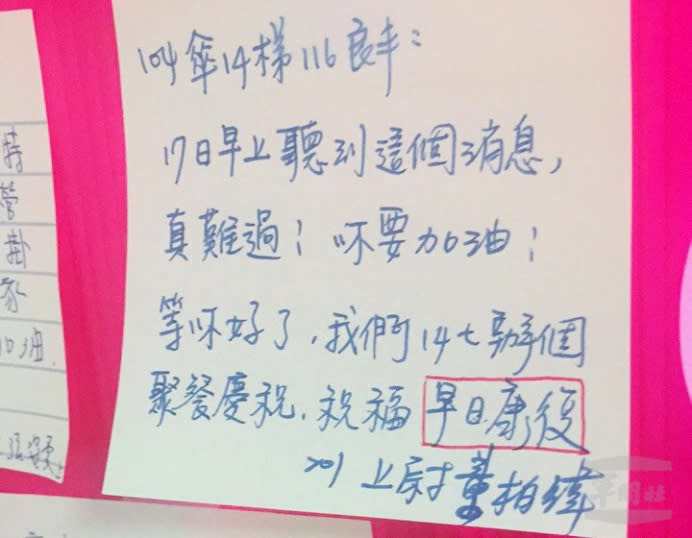 104傘14梯116良丰：
17日早上聽到這個消息，
真難過！你要加油！
等你好了，我們14七辦個
聚餐慶祝，祝福早日康復
201上尉董柏緯
特
營
掛
家
油
軍聞社